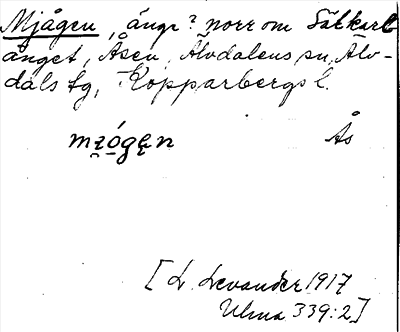 Mjågen, ängr? norr om Sätkarl
änget, Åsen, Älvdalens sn, Älv-
dals tg, Kopparbergs l.
mi̯ógęn Ås
[L. Levander 1917
Ulma 339:2]